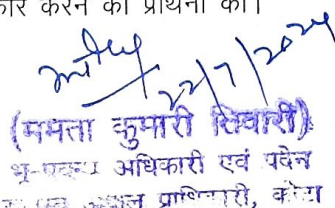 कार करने की प्रार्थना की।
22/7/2024
(ममता कुमारी तिवारी)
भू-प्रबन्ध अधिकारी एवं पदेन
प्राधिकारी, कोटा